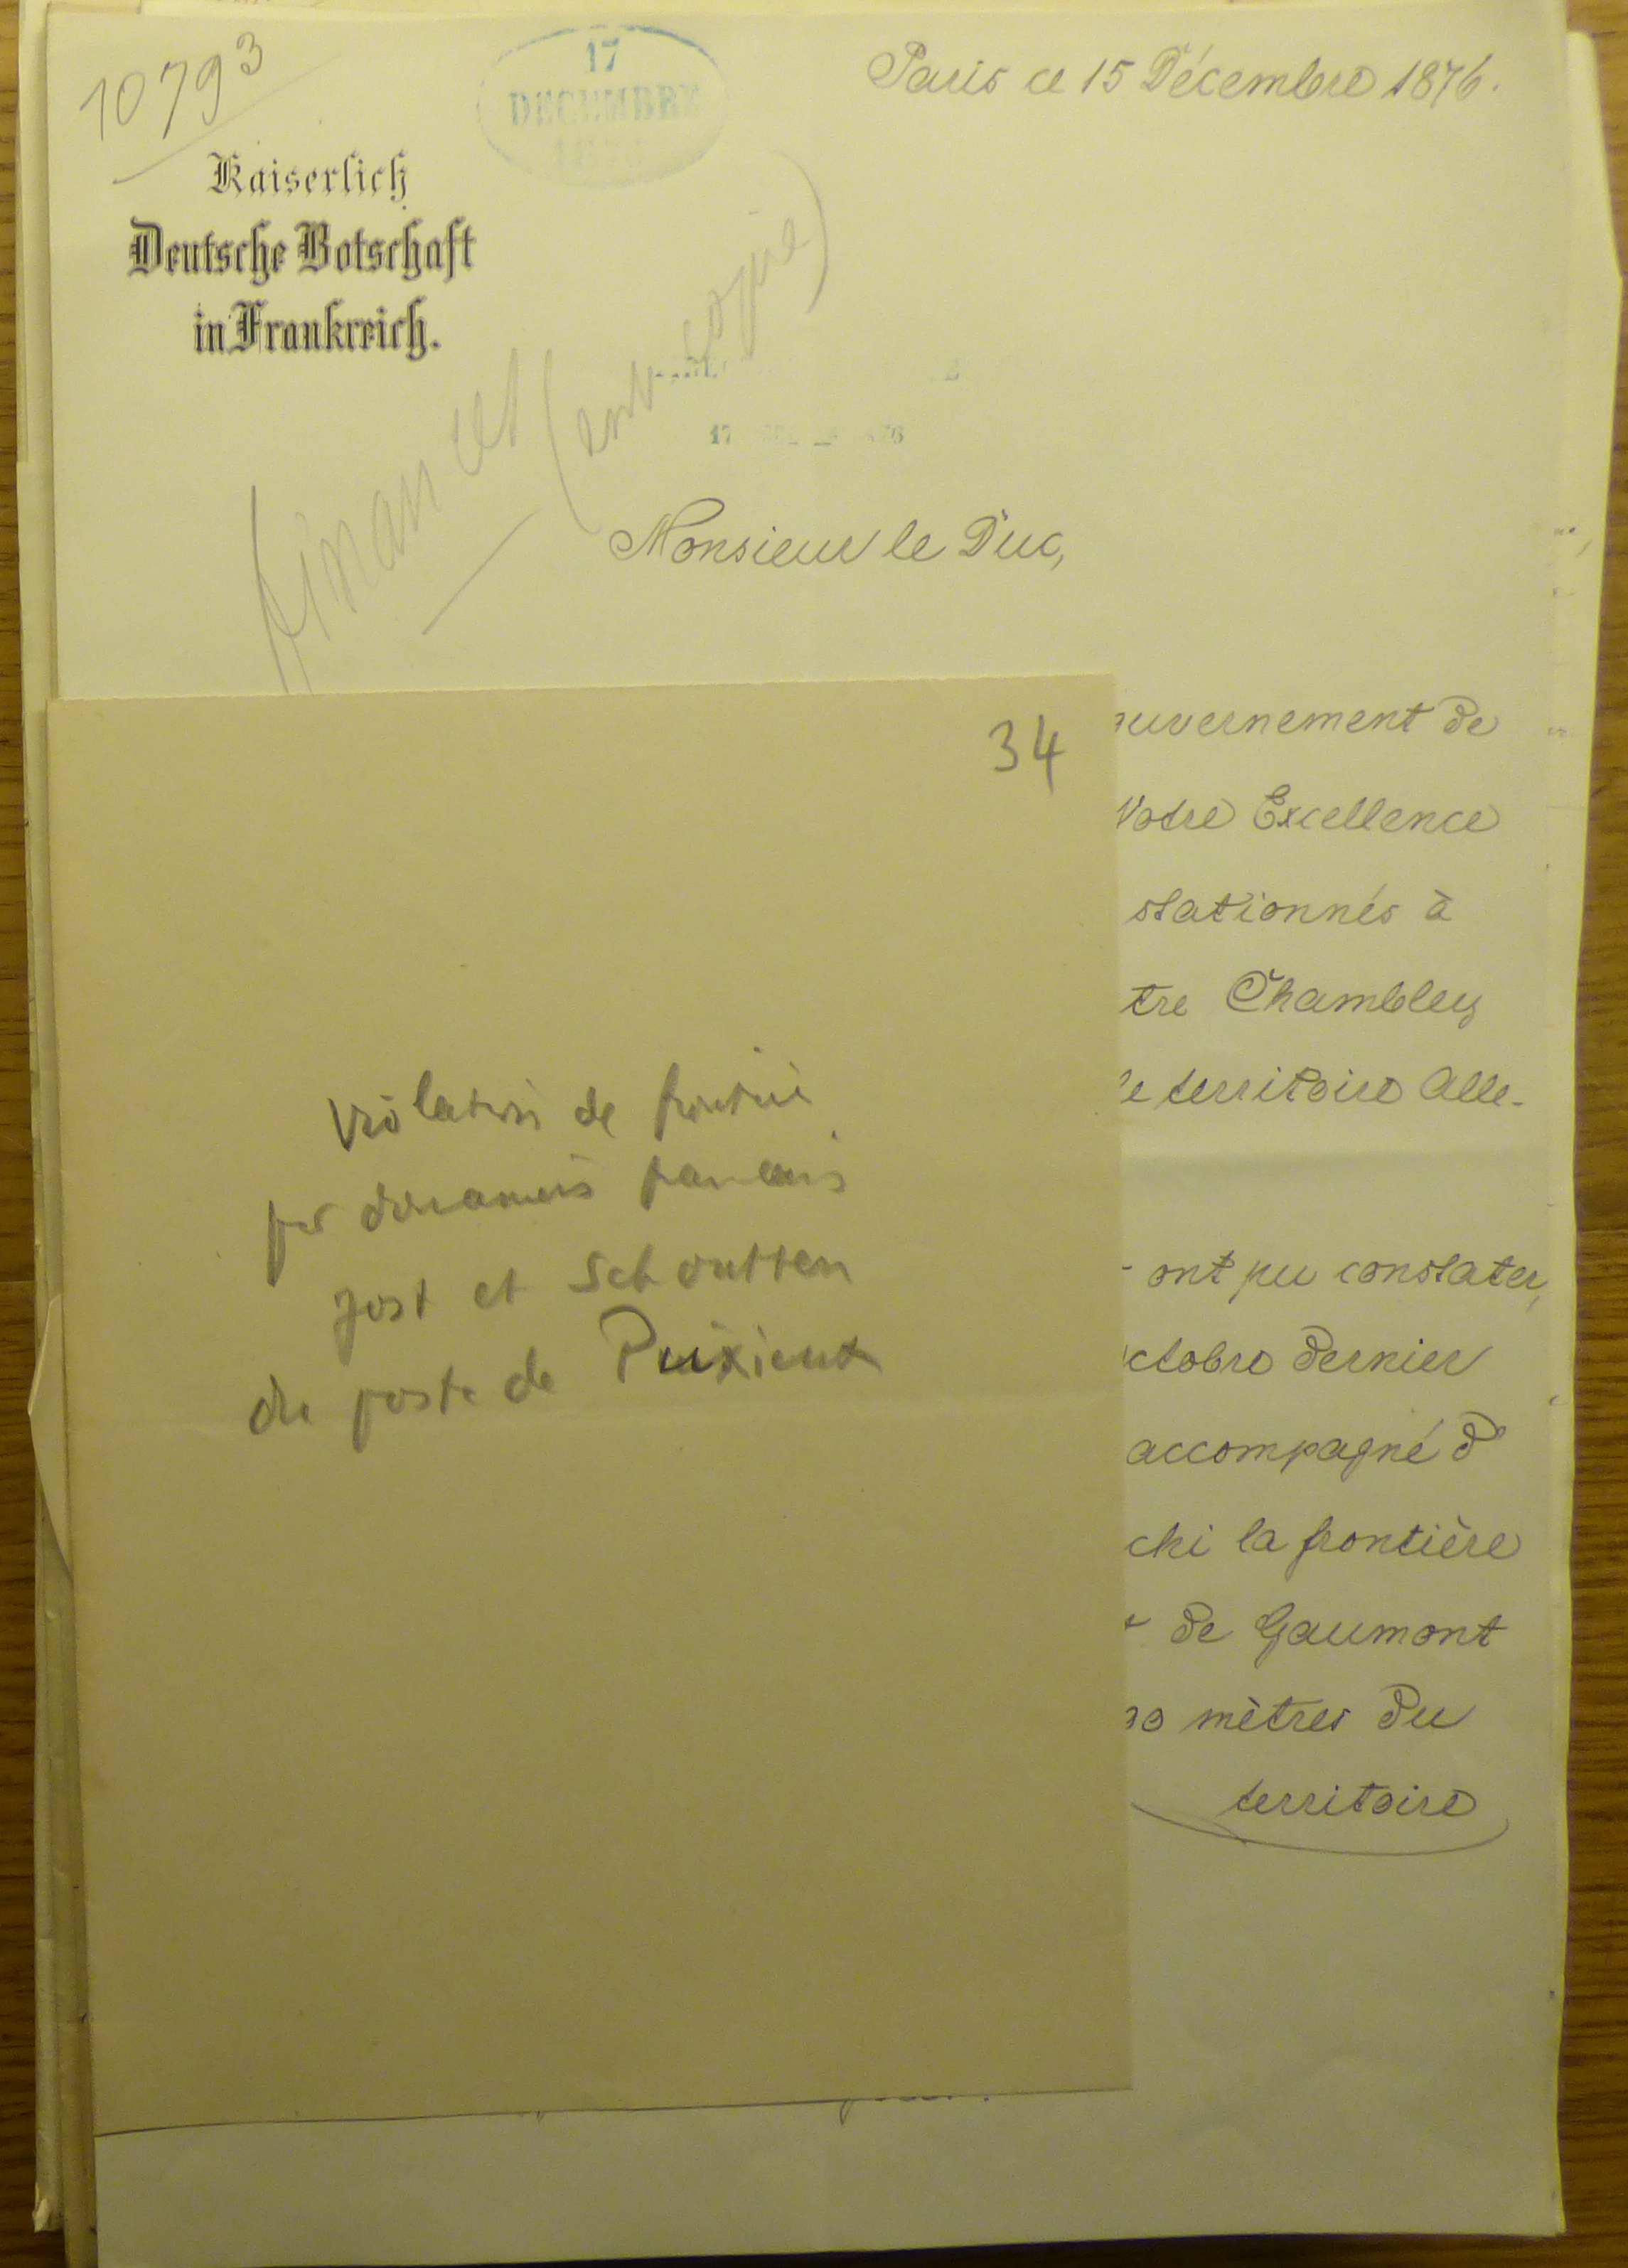 10793
17
DECEMBRE
Paris ce 15 Décembre 1876.
Kaiserlich
Deutsche Botschaft
in Frankreich.
finances (copie)
17 76
Monsieur le Duc,
ouvernement de
Votre Excellence
stationnés à
tre Chambley
le territoire Alle-
ont pu constater,
octobre dernier
accompagné d'
chi la frontière
de Gaumont
00 mètres du
territoire
34
Violation de frontière
par douaniers français
Jost et Schoutten
du poste de Puixieux